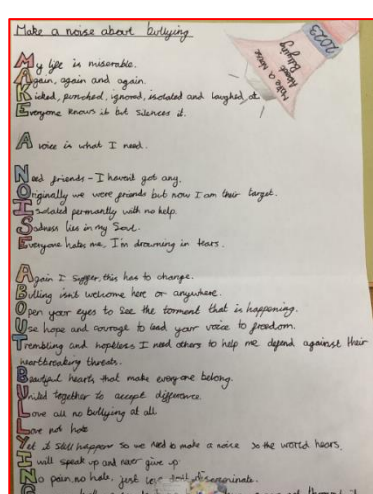 Make a noise about bullying
2023
Make a Noise
About
Bullying
My life is miserable.
Again, again and again.
Kicked, punched, ignored, isolated and laughed at
Everyone knows it but silences it.
A voice is what I need.
Need friends - I havent got any.
Originally we were friends but now I am their target.
Isolated permantly with no help.
Sadness lies in my soul.
Everyone hates me, I'm drowning in tears.
Again I suffer, this has to change.
Bulling isnt welcome here or anywhere.
Open your eyes to see the torment that is happening.
Use hope and courage to lead your voice to freedom.
Trembling and hopless I need others to help me defend against their
heartbreaking threats.
Beautiful hearts that make everyone belong.
United together to accept difference.
Love all no bullying at all.
Love not hate
Yet it still happens so we need to make a noise so the world hears.
I will speak up and never give up.
No pain, no hate, just love